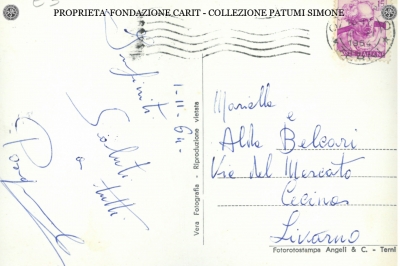 PROPRIETA' FONDAZIONE CARIT - COLLEZIONE PATUMI SIMONE
Infiniti
Saluti
a tutti
1-11-64-
Vera Fotografia - Riproduzione vietata
Mariella
e
Aldo Belcari
Via del Mercato
Cecina
Livorno
Fotorotostampa Angeli & C. - Terni